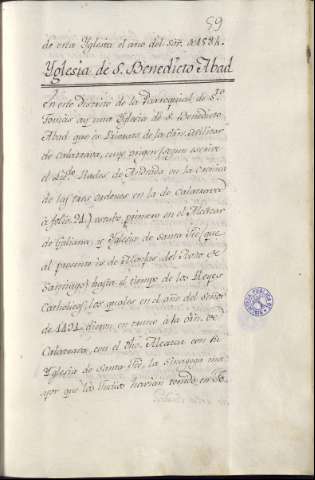 59
de esta Yglesia el año del Sr. de 1584.
Yglesia de S. Benedicto Abad
En este distrito de la Parroquial de Sto.
Tomás ay una Yglesia de S. Benedicto
Abad que es Priorato de la Orn. Militar
de Calatrava, cuyo origen segun escrive
el Ldo. Rades de Andrada en la Cronica
de las tres ordenes en la de Calatrava
à folio 24) estubo primero en el Alcazar
de Galiana, y Yglesia de Santa Fée (que
al presente es de Monjas del Orto de
Santiago) hasta el tiempo de los Reyes
Catholicos, los quales en el año del Señor
de 1494 dieron en trueco à la Orn. de
Calatrava, con el dho. Alcazar con su
Yglesia de Santa Fée, la Sinagoga ma-
yor que los Judios havian tenido en To-